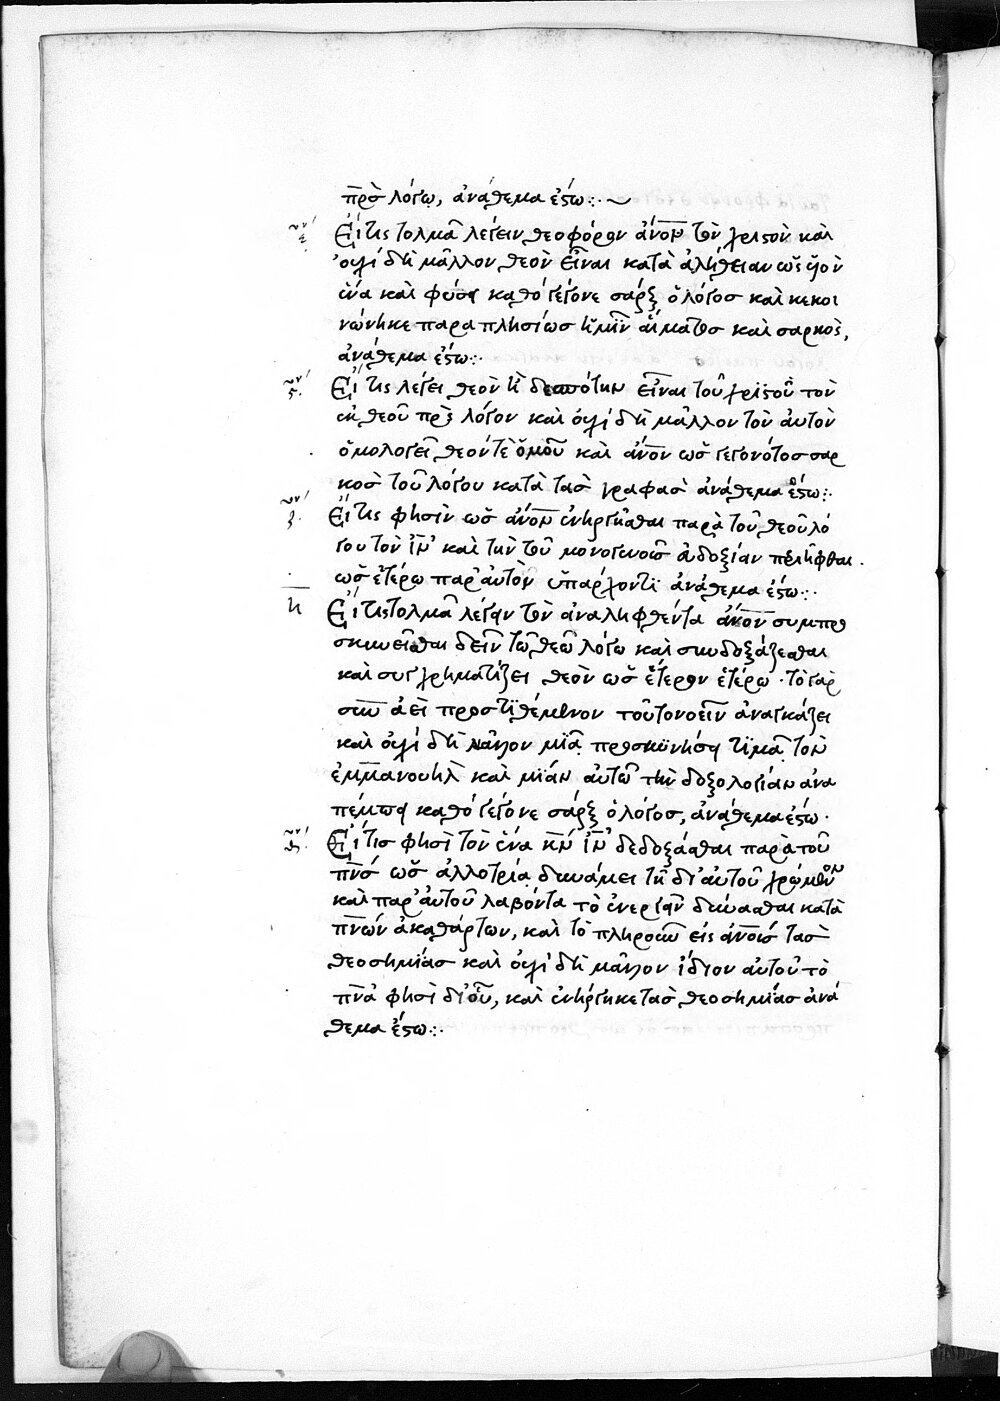 π̅ρ̅ς̅ λόγω, ἀνάθεμα ἔστω:· ~
ε΄ Εἴ τις τολμᾶ λέγειν θεοφόρον ἄν̅ο̅ν̅ τὸν χριστὸν καὶ
οὐχὶ δὴ μᾶλλον θεὸν εἶναι κατὰ ἀλήθειαν ὡς υἱὸν
ἕνα καὶ φύσει καθὸ γέγονε σὰρξ ὁ λόγοσ καὶ κεκοι
νώνηκε παραπλησίωσ ἡμῖν αἵματοσ καὶ σαρκὸς,
ἀνάθεμα ἔστω:·
ς΄ Εἴ τις λέγει θεὸν ἢ δεσπότην εἶναι τοῦ χριστοῦ τὸν
ἐκ θεοῦ π̅ρ̅ς̅ λόγον καὶ οὐχὶ δὴ μᾶλλον τὸν αὐτὸν
ὁμολογεῖ θεόν τὲ ὁμοῦ καὶ ἄν̅ο̅ν̅ ὡσ γεγονότοσ σαρ
κοσ τοῦ λόγου κατὰ τασ γραφασ ἀνάθεμα ἔστω:·
ζ΄ Εἴ τις φησὶν ὡσ ἄν̅ο̅ν̅ ἐνηργῆσθαι παρὰ τοῦ θεοῦ λό
γου τὸν ι̅ν̅ καὶ τὴν τοῦ μονογενοῦσ εὐδοξίαν περιῆφθαι
ὡσ ἑτέρω παρ' αὐτὸν ὑπάρχοντι ἀνάθεμα ἔστω:·
η Εἴ τις τολμᾶ λέγειν τὸν ἀναληφθέντα ἄν̅ο̅ν̅ συμπρο
σκυνεῖσθαι δεῖν τῶ θεῶ λόγω καὶ συνδοξάζεσθαι
καὶ συγχρηματίζει θεὸν ὡσ ἕτερον ἑτέρω · τὸ γὰρ
σὺν ἀεὶ προστιθέμενον τοῦτο νοεῖν ἀναγκάζει
καὶ οὐχὶ δὴ μᾶλλον μιᾶ προσκυνήσει τιμᾶ τὸν
ἐμμανουὴλ καὶ μίαν αὐτῶ τὴν δοξολογίαν ἀνα
πέμπει καθὸ γέγονε σὰρξ ὁ λόγοσ, ἀνάθεμα ἔστω ·
θ΄ Εἴ τισ φησὶ τὸν ἕνα κ̅ν̅ ι̅ν̅ δεδοξάσθαι παρὰ τοῦ
π̅ν̅ς̅ ὡσ ἀλλοτρία δυνάμει τῆ δι' αὐτοῦ χρώμενον
καὶ παρ' αὐτοῦ λαβόντα τὸ ἐνεργεῖν δύνασθαι κατὰ
π̅ν̅ων ἀκαθάρτων, καὶ τὸ πληροῦν εἰς ἀν̅ο̅υσ τασ
θεοσημίασ καὶ οὐχὶ δὴ μᾶλλον ἴδιον αὐτοῦ τὸ
π̅ν̅α̅ φησὶ δι' οὗ, καὶ ἐνήργηκε τασ θεοσημίασ ἀνά
θεμα ἔστω:·